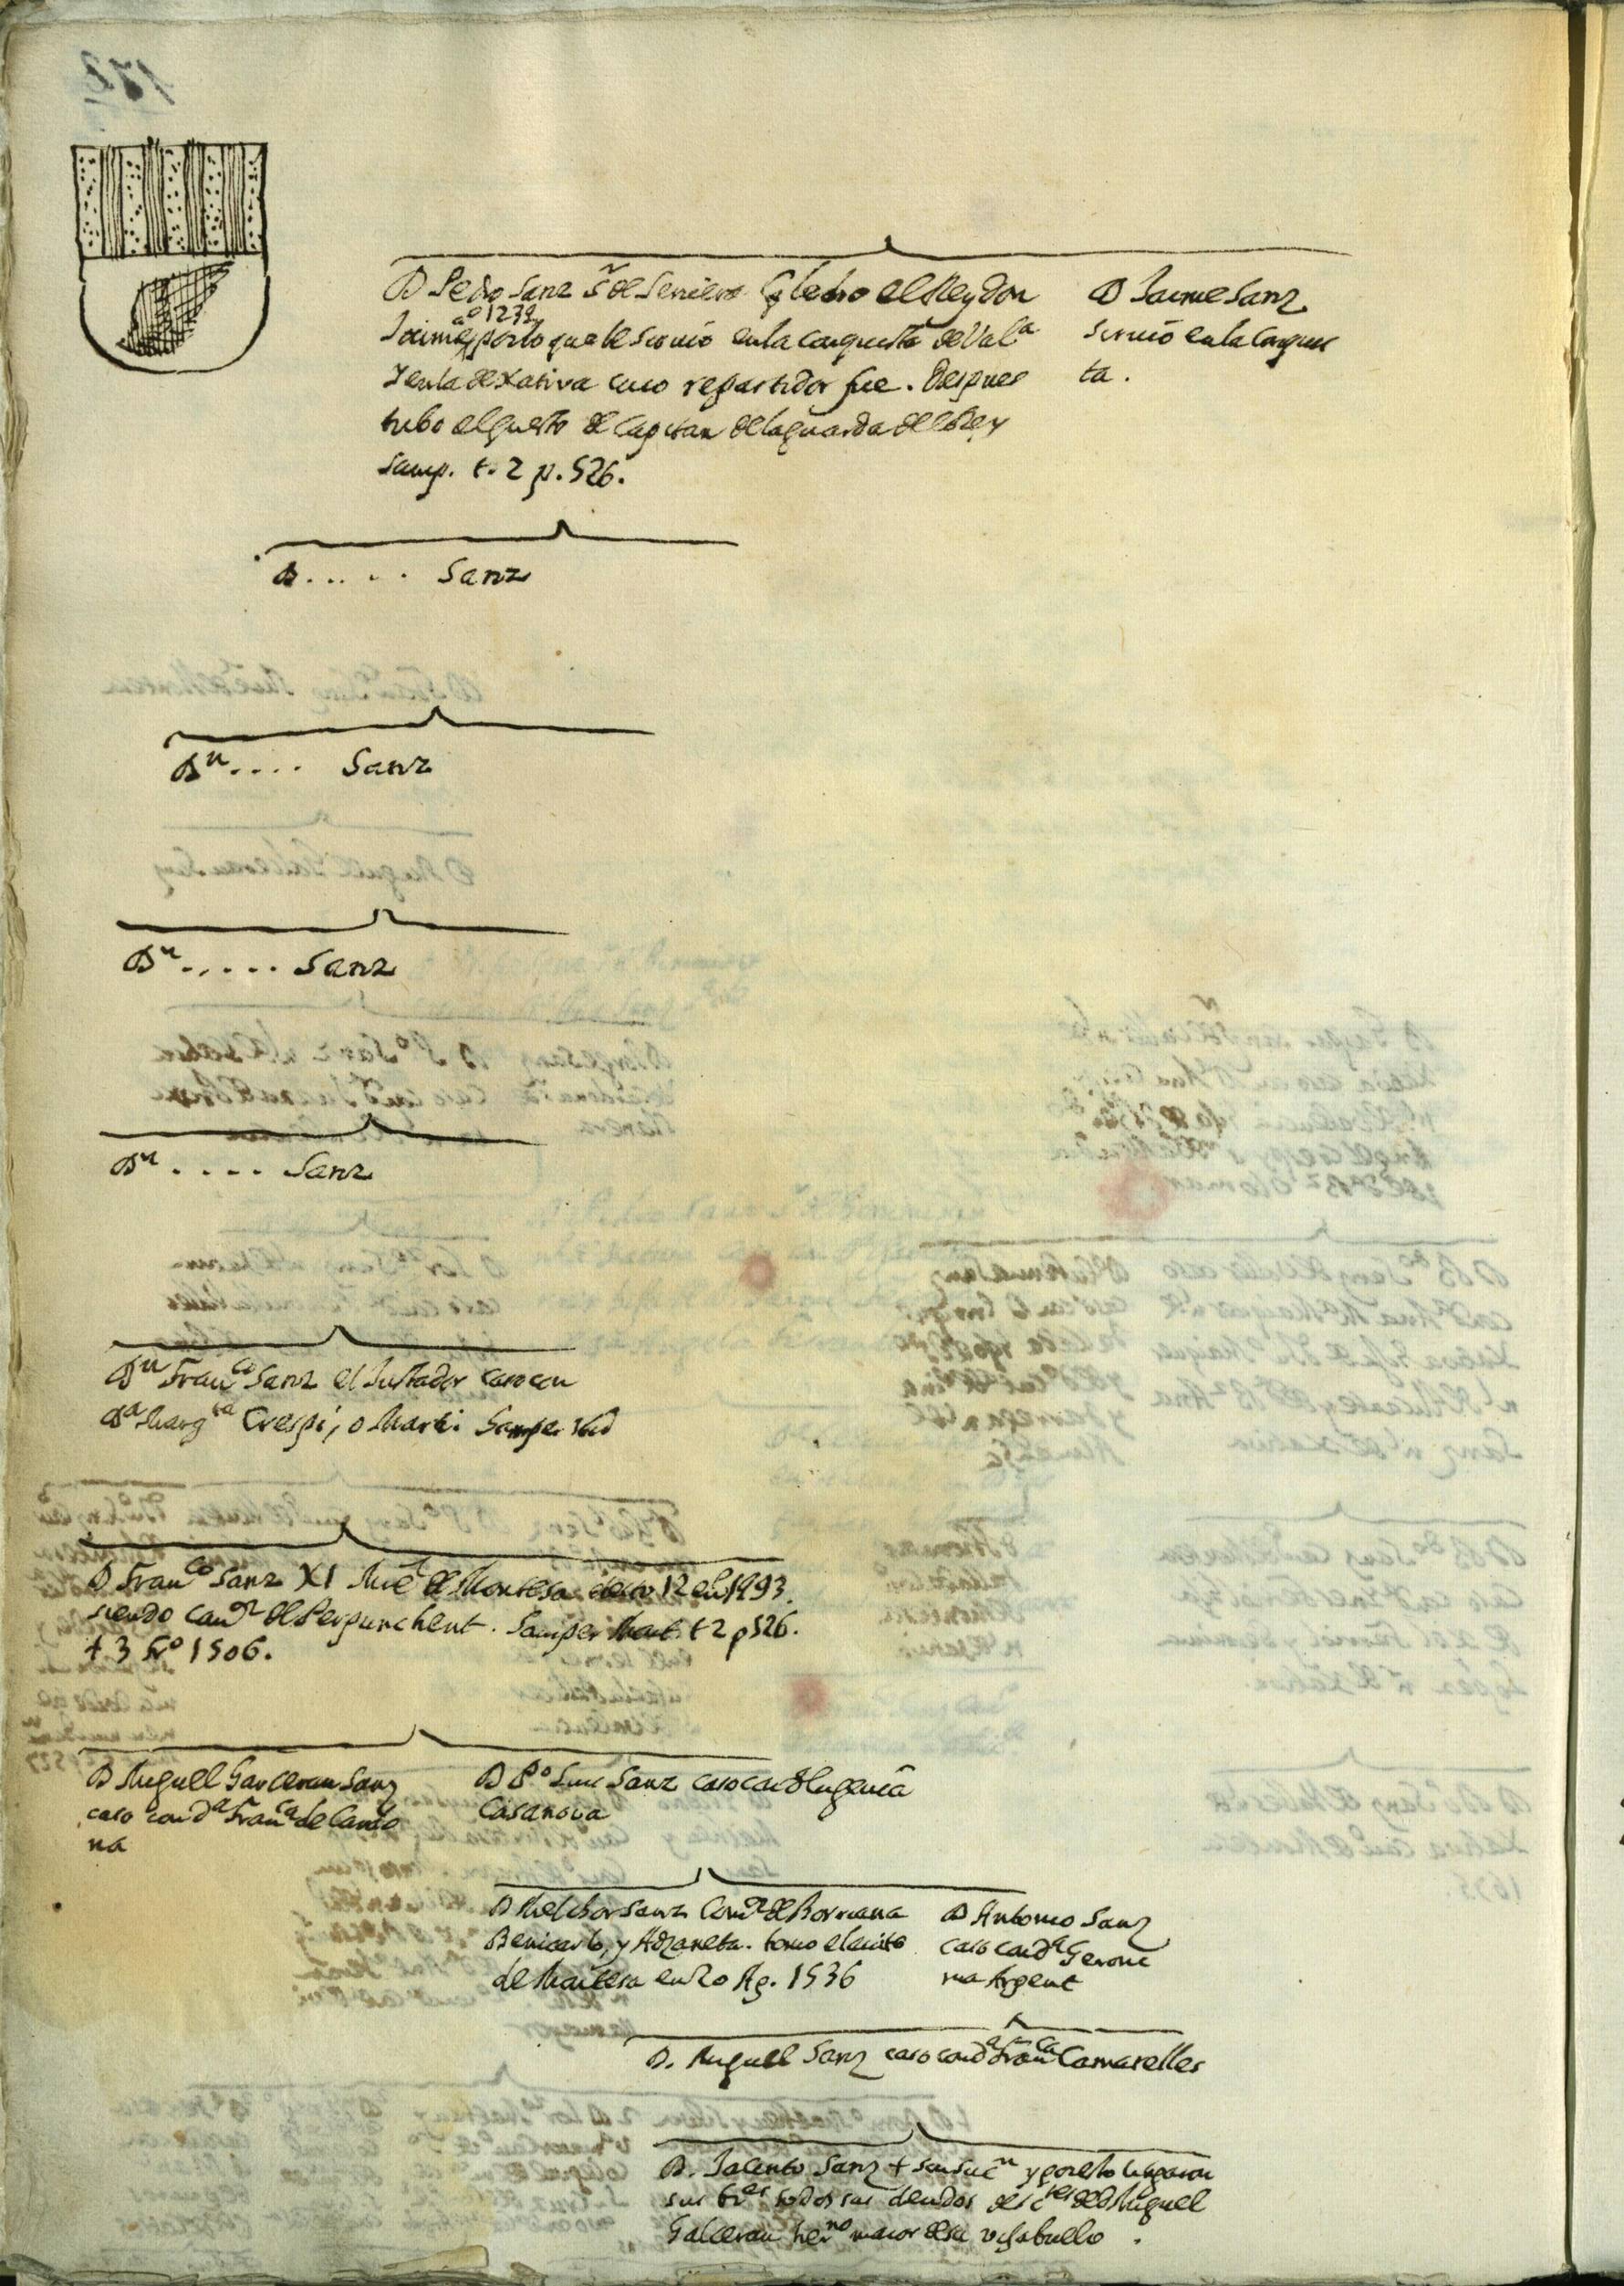 D Pedro Sanz Sr de Senien q le dio el Rey Don
Jaime ao 1239 por lo que le siruio en la conquista de Vala
y en la de Xativa cuio repartidor fue. Despues
tubo el puesto de Capitan de la guarda del Rey
Samp. t. 2 p. 526.
D Jaime Sanz
siruio en la conquis
ta.
D. . . . . Sanz
Dn . . . . Sanz
Dn . . . . . Sanz
Dn . . . . Sanz
Dn Franco Sanz el Justador caso con
Da Margta Crespi, o Marti Samper ibid
D Franco Sanz XI Mre de Montesa electo 12 1493.
siendo Comr de Perpunchent. Samper Mont. t 2 p 526.
+ 3 1506.
D Miguel Garceran Sanz
caso con da Franca de Cardo
na
D Po Luis Sanz caso con Eugenia
Casanova
D Melchor Sanz Comr de Borriana
Benicarlo, y Adzaneta. tomo el auito
de Montesa en 20 Ag. 1536
D Antonio Sanz
caso con da Geroni
ma Argent
D. Miguel Sanz caso con da Franca Camarelles
D. Jacinto Sanz + sin sucn y por esto litigaron
sus todos sus deudos de d Miguel
Galceran herno maior de su visabuelo.